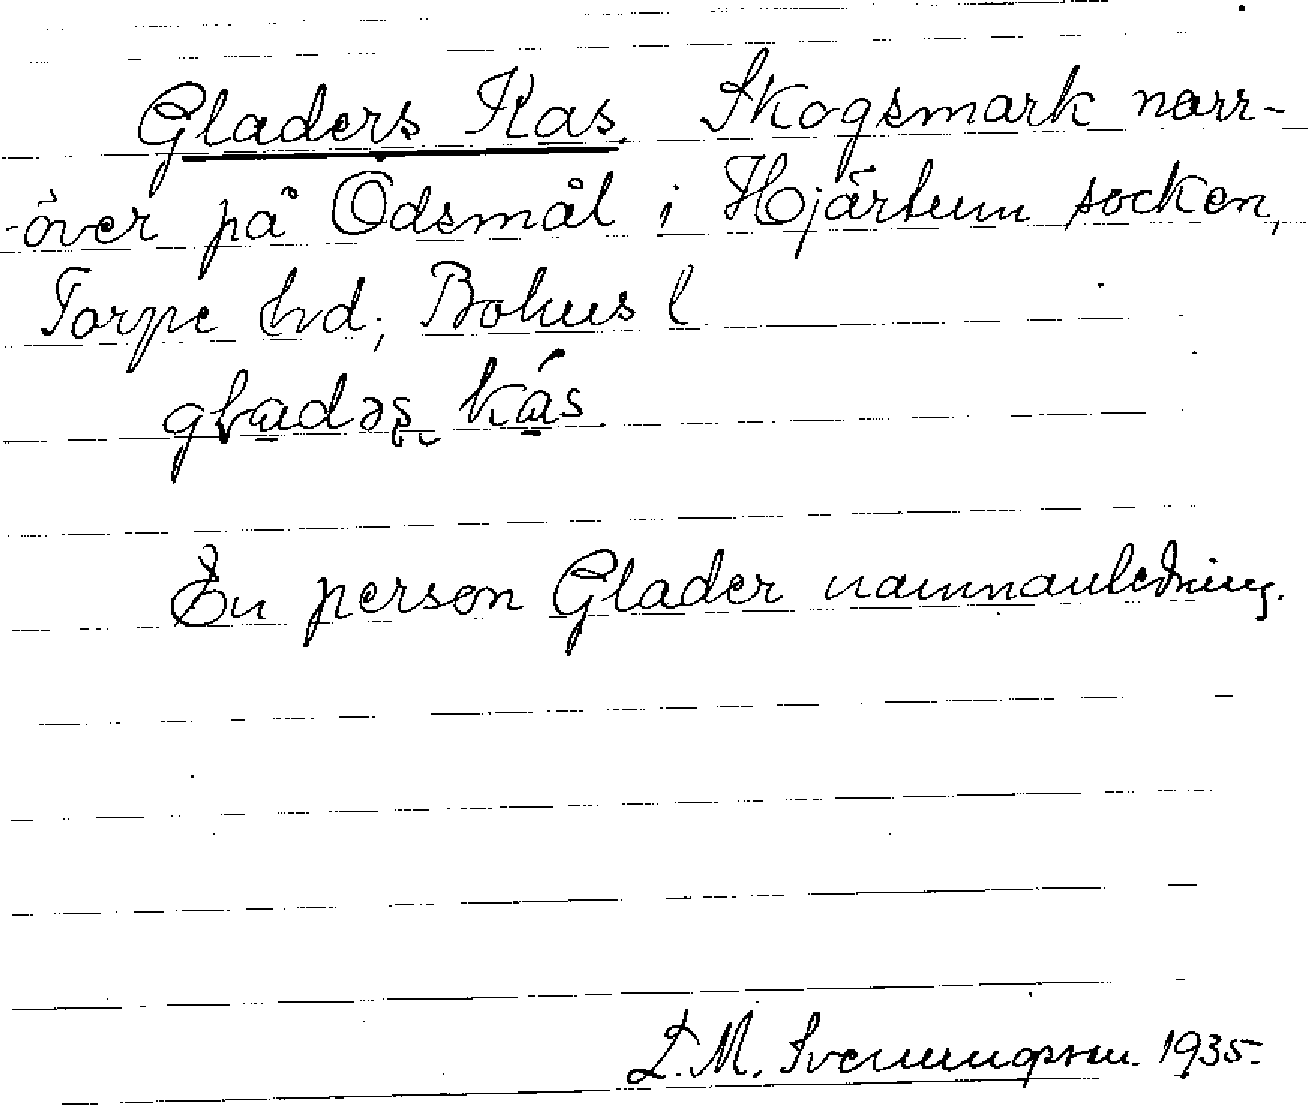 Gladers Kas. Skogsmark norr-
-över på Ödsmål i Hjärtum socken,
Torpe hd; Bohus l
gladəs kás.
En person Glader namnanledning.
L. M. Svenungsson. 1935.